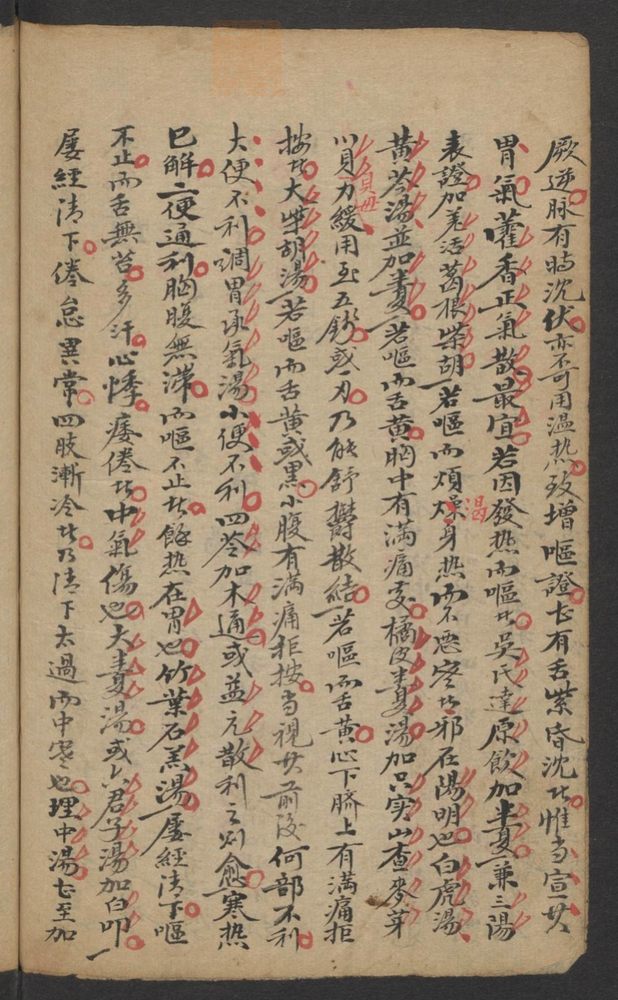 厥逆脉有時沉伏亦不可用温热致增嘔證甚有舌紫昏沉者惟当宣其
胃氣藿香正氣散最宜若因發热而嘔者吳氏達原飲加半夏兼三陽
表證加羌活葛根柴胡若嘔而煩燥渴身热而不惡寒者邪在陽明也白虎湯
黄芩湯並加半夏若嘔而舌黄胸中有滿痛處橘皮半夏湯加只实山查麥芽
川貝貝毋力緩用至五錢或一刄乃能舒欝散結若嘔而舌黄心下臍上有滿痛拒
按者大柴胡湯若嘔而舌黄或黑小腹有滿痛拒按当視其前後何部不利
大便不利調胃承氣湯小便不利四苓加木通或益元散利之則愈寒热
已解二便通利胸腹無滯而嘔不止者餘热在胃也竹葉石羔湯屡經清下嘔
不止而舌無苔多汗心悸痿倦者中氣傷也大半夏湯或六君子湯加白叩
屡經清下倦怠異常四肢漸冷者乃清下太過而中寒也理中湯甚至加